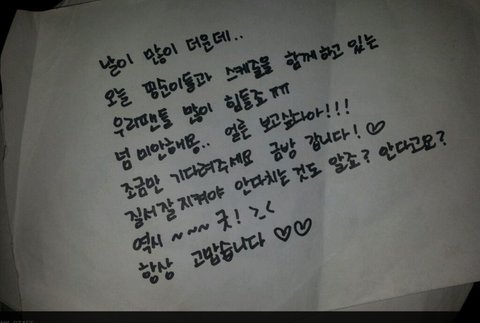 날이 많이 더운데..
오늘 팡순이들과 스케줄을 함께하고 있는
우리팬들 많이 힘들죠 ㅠㅠ
넘 미안해요.. 얼른 보고싶다아!!!
조금만 기다려주세요 금방 갑니다! ♡
질서 잘 지켜야 안다치는것도 알죠? 안다고요?
역시 ~~~ 굿! >.<
항상 고맙습니다 ♡♡